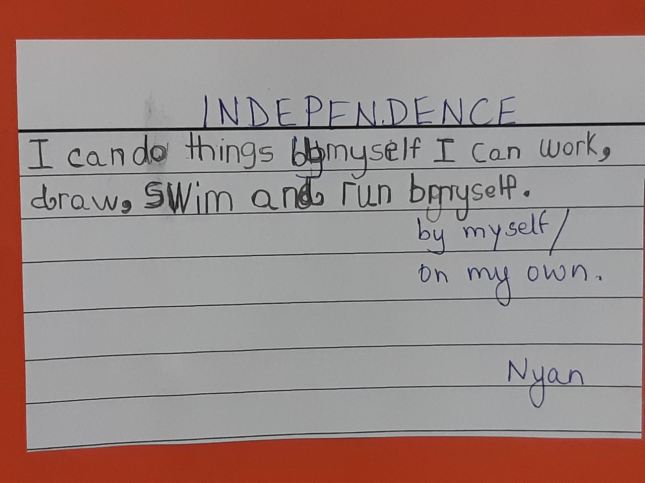 INDEPENDENCE
I can do things by myself I can work,
draw, swim and run bmyself.
by myself/
on my own.
Nyan